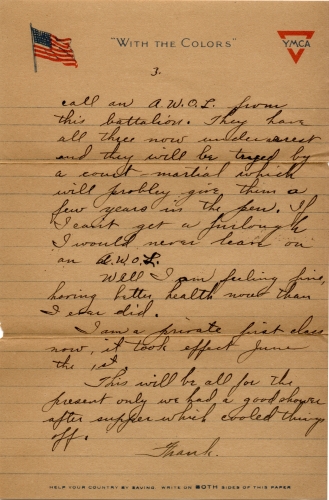 "WITH THE COLORS"
YMCA
3.
call an A.W.O.L. from
this battalion. They have
all three now under arrest
and they will be tryed by
a court-martial which
will probley give them a
few years in the pen. If
I cant get a furlough
I would never leave on
an A.W.O.L.
Well I am feeling fine,
having better health now than
I ever did.
I am a private first class
now, it took effect June
the 1st
This will be all for the
present only we had a good shower
after supper which cooled things
off.
Frank.
HELP YOUR COUNTRY BY SAVING. WRITE ON BOTH SIDES OF THIS PAPER